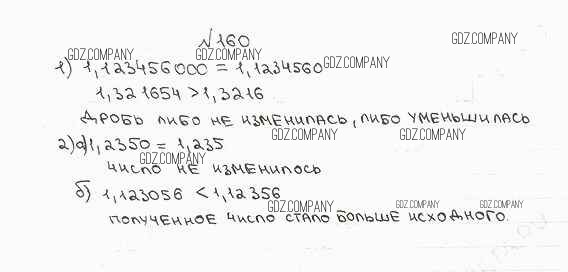 №160
GDZ.COMPANY GDZ.COMPANY GDZ.COMPANY
1) 1,123456000 = 1,1234560 GDZ.COMPANY
1,321654 > 1,3216
ДРОБЬ ЛИБО НЕ ИЗМЕНИЛАСЬ, ЛИБО УМЕНЬШИЛАСЬ
GDZ.COMPANY GDZ.COMPANY
2) а) 1,2350 = 1,235
GDZ.COMPANY
ЧИСЛО НЕ ИЗМЕНИЛОСЬ
б) 1,123056 < 1,12356
GDZ.COMPANY GDZ.COMPANY GDZ.COMPANY
ПОЛУЧЕННОЕ ЧИСЛО СТАЛО БОЛЬШЕ ИСХОДНОГО.